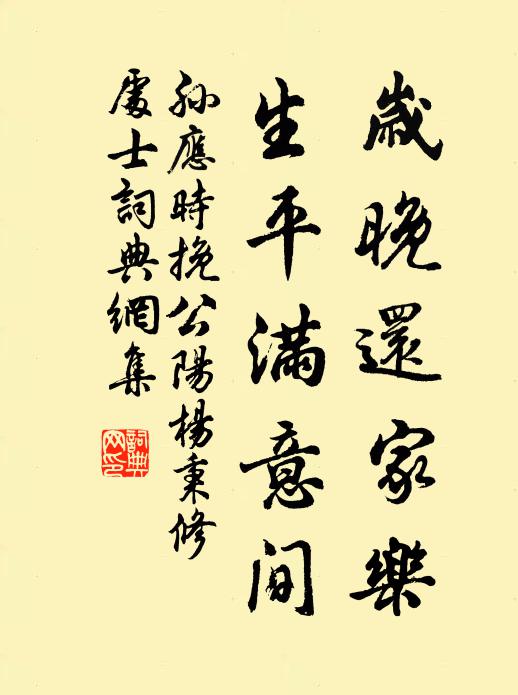 歲晚還家樂
生平滿意間
孫應時挽公陽楊秉修
處士詞典網集
詞典
网印